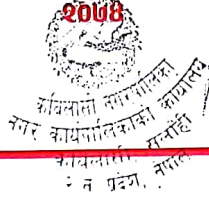 २०७४
कविलासी नगरपालिका
नगर कार्यपालिकाको कार्यालय
कविलासी, सर्लाही
प्रदेश, नेपाल